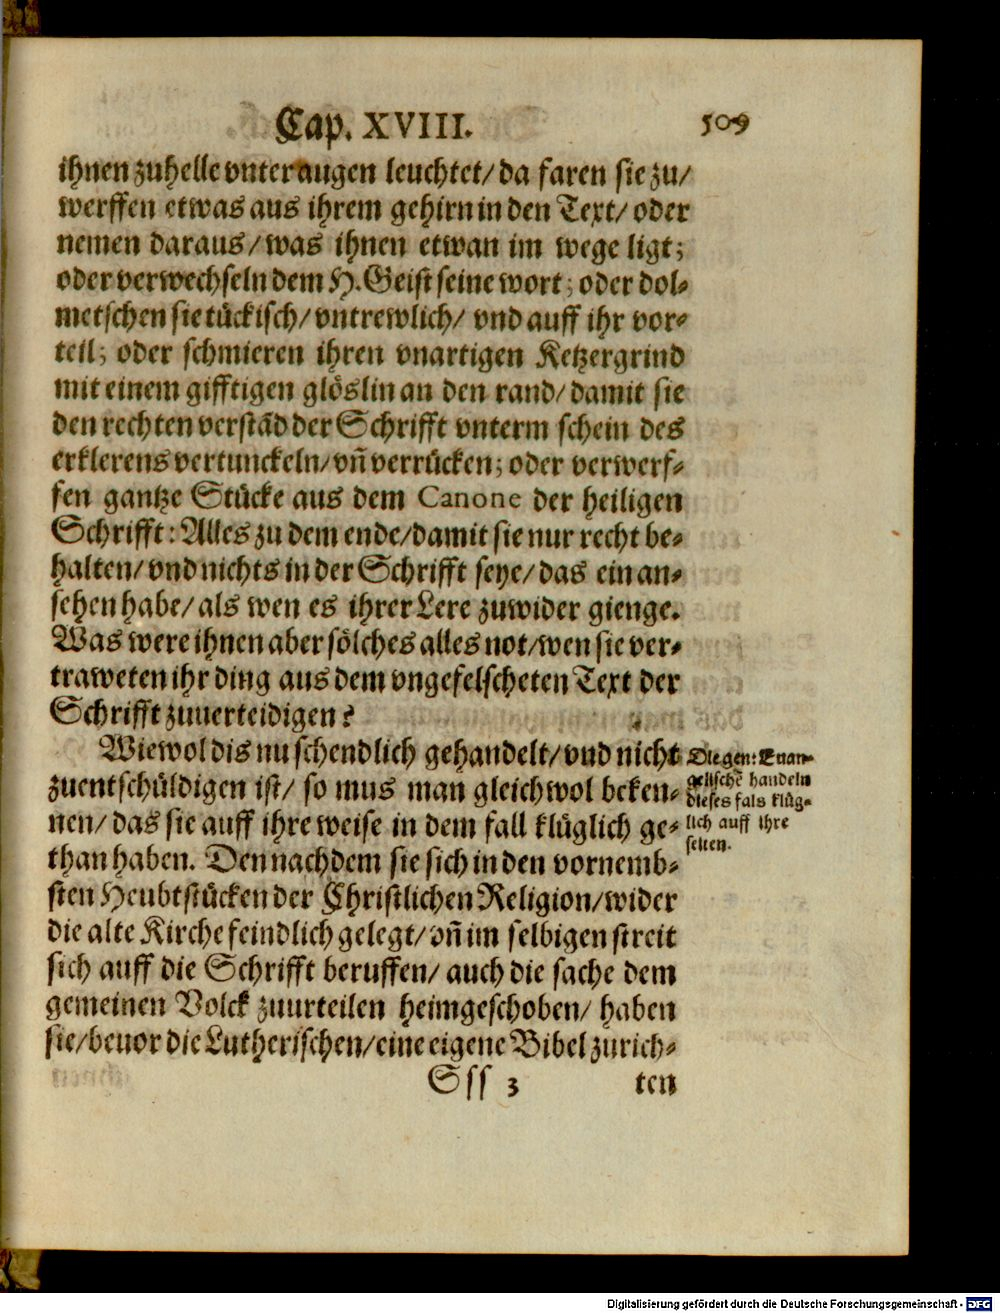 Cap. XVIII. 509
ihnen zuhelle vnter augen leuchtet/ da faren sie zu/
werffen etwas aus ihrem gehirn in den Text/ oder
nemen daraus/ was ihnen etwan im wege ligt;
oder verwechseln dem H. Geist seine wort; oder dol-
metschen sie tückisch/ vntrewlich/ vnd auff ihr vor-
teil; oder schmieren ihren vnartigen Ketzergrind
mit einem gifftigen glöslin an den rand/ damit sie
den rechten verstãd der Schrifft vnterm schein des
erklerens vertunckeln/ vñ verrücken; oder verwerf-
fen gantze Stücke aus dem Canone der heiligen
Schrifft: Alles zu dem ende/ damit sie nur recht be-
halten/ vnd nichts in der Schrifft seye/ das ein an-
sehen habe/ als wen es ihrer Lere zuwider gienge.
Was were ihnen aber sölches alles not/ wen sie ver-
traweten ihr ding aus dem vngefelscheten Text der
Schrifft zuuerteidigen?
Wiewol dis nu schendlich gehandelt/ vnd nicht
zuentschüldigen ist/ so mus man gleichwol beken-
nen/ das sie auff ihre weise in dem fall klüglich ge-
than haben. Den nachdem sie sich in den vornemb-
sten Heubtstücken der Christlichen Religion/ wider
die alte Kirche feindlich gelegt/ vñ im selbigen streit
sich auff die Schrifft beruffen/ auch die sache dem
gemeinen Volck zuurteilen heimgeschoben/ haben
sie/ beuor die Lutherischen/ eine eigene Bibel zurich-
Sss 3 ten
Die gen: Euan-
gelischẽ handeln
dieses fals klüg-
lich auff ihre
seiten.
Digitalisierung gefördert durch die Deutsche Forschungsgemeinschaft - DFG